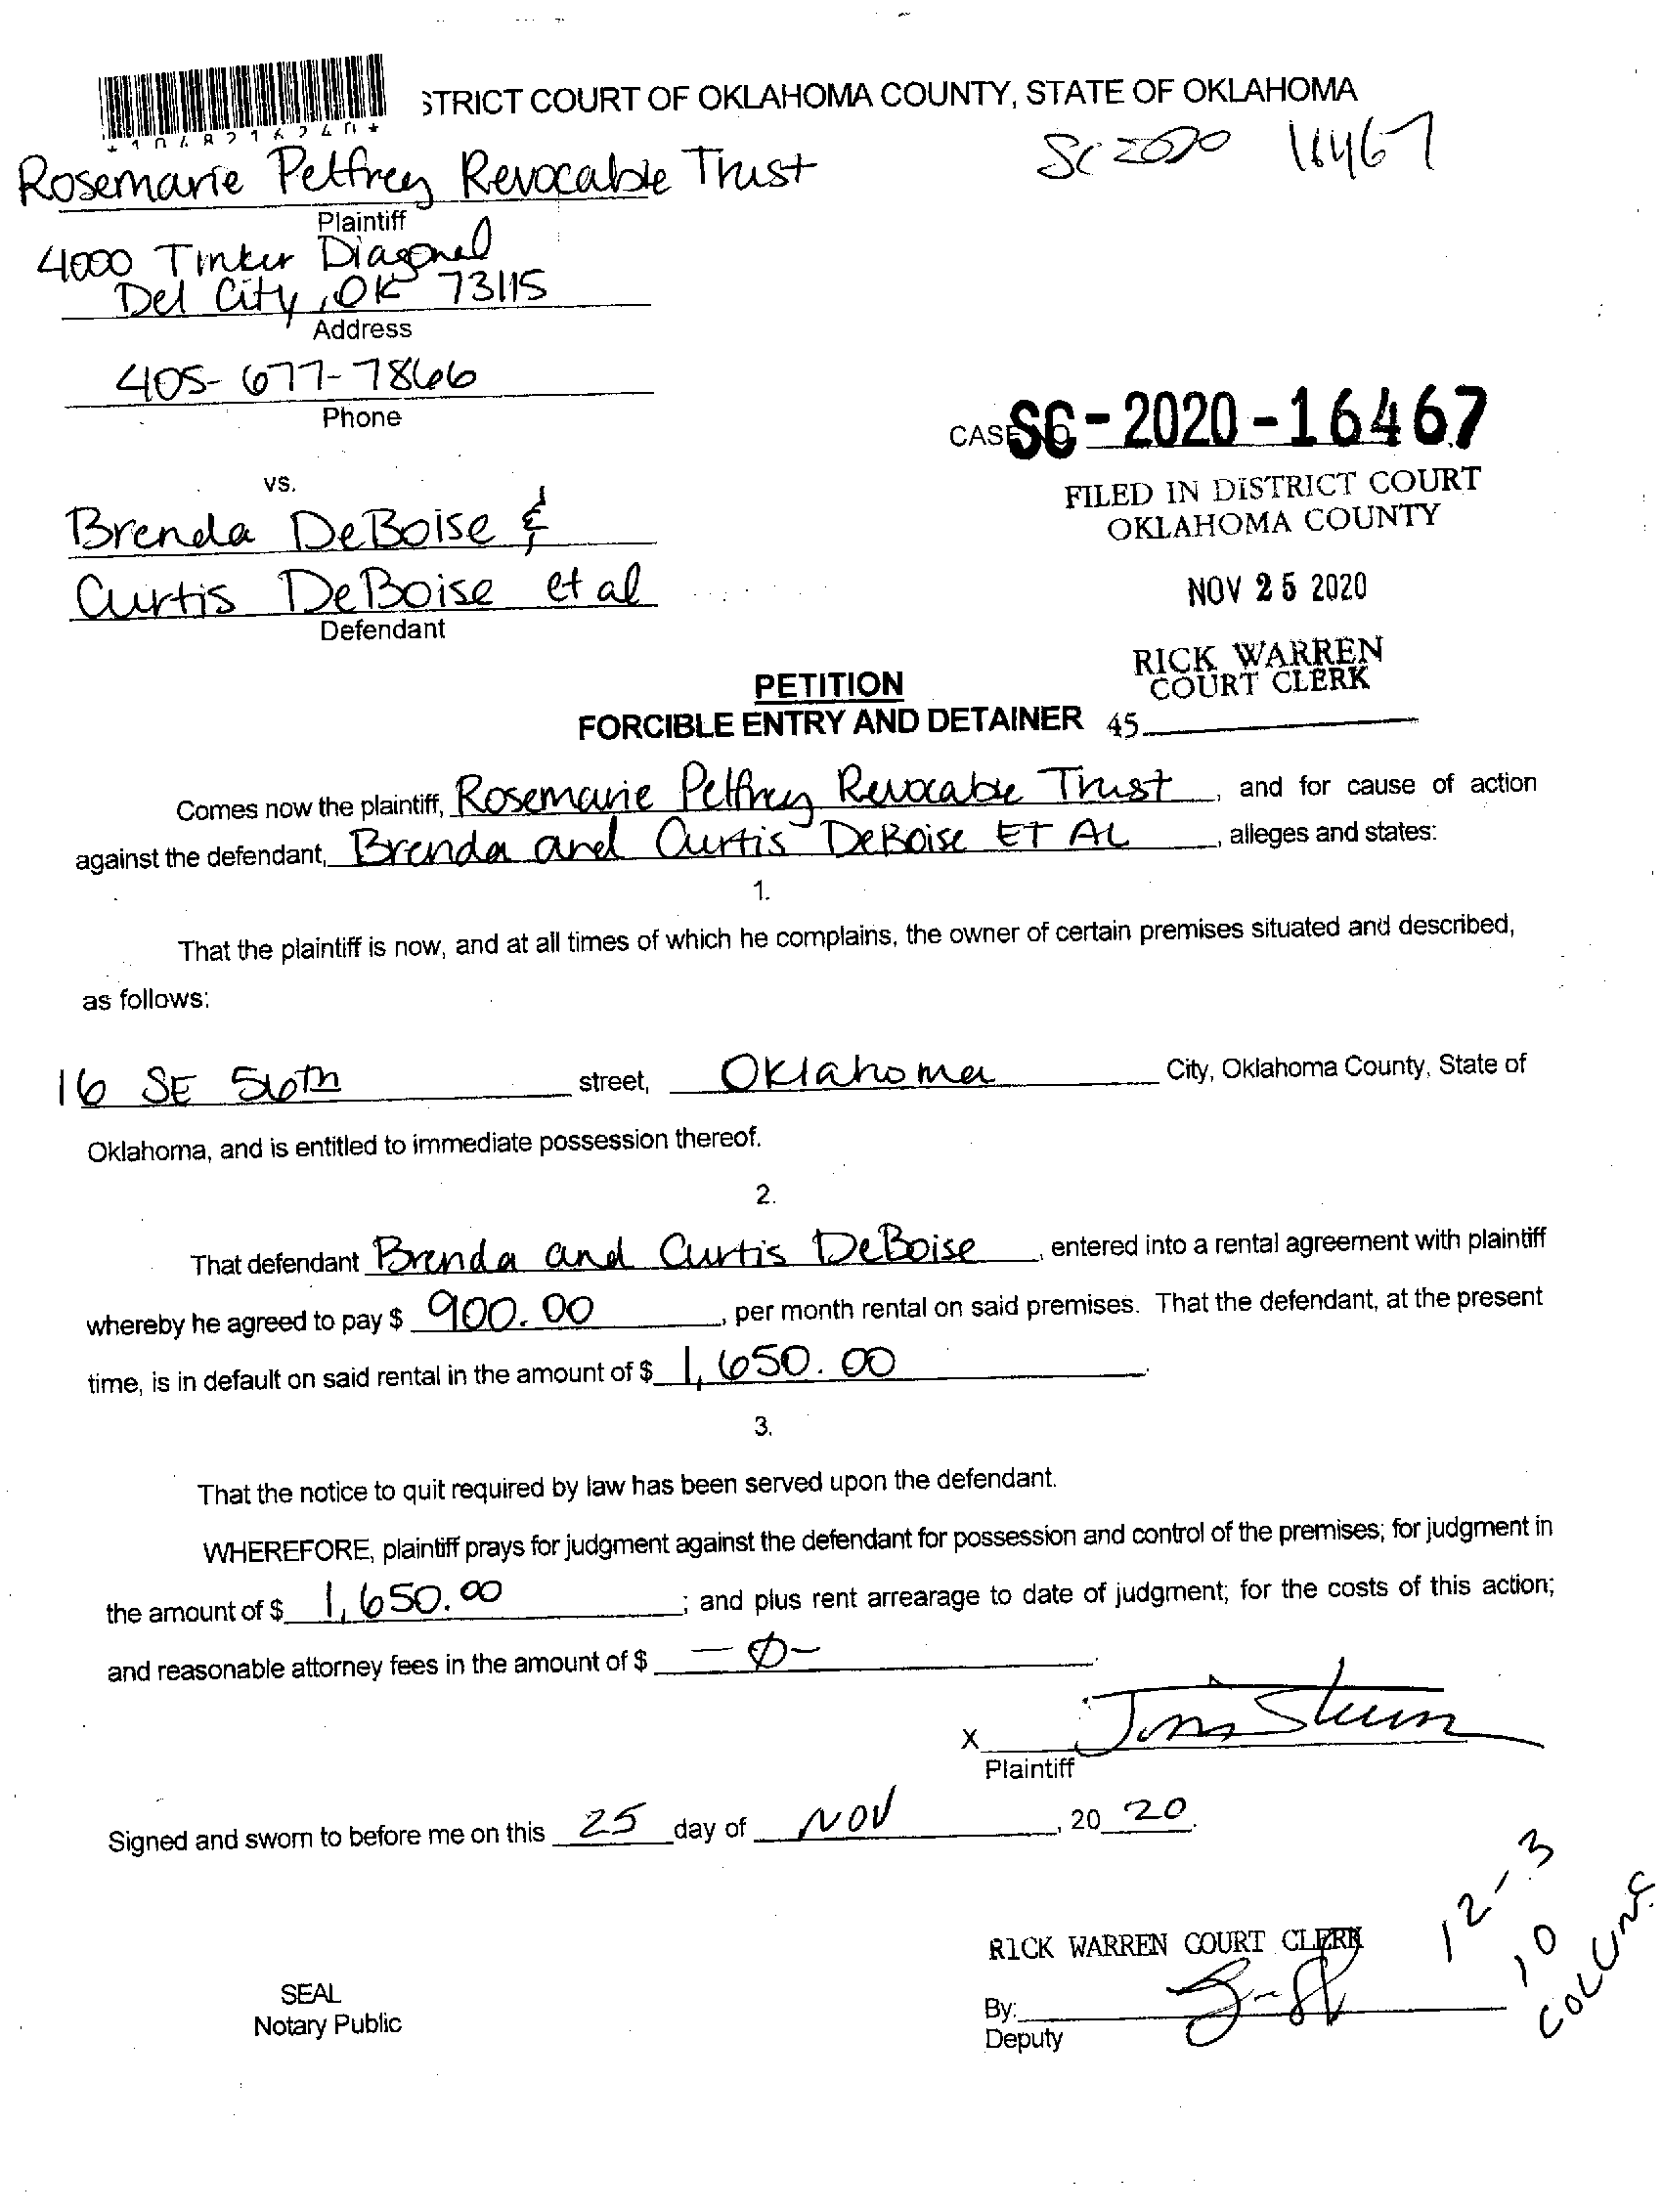 STRICT COURT OF OKLAHOMA COUNTY, STATE OF OKLAHOMA
*1048216240*
SC 2020 16467
Rosemarie Pelfrey Revocable Trust
Plaintiff
4000 Tinker Diagonal
Del City, OK 73115
Address
405-677-7866
Phone
CASE SC-2020-16467
FILED IN DISTRICT COURT
OKLAHOMA COUNTY
vs.
Brenda DeBoise &
Curtis DeBoise et al
Defendant
NOV 25 2020
RICK WARREN
COURT CLERK
PETITION
FORCIBLE ENTRY AND DETAINER 45
Comes now the plaintiff, Rosemarie Pelfrey Revocable Trust, and for cause of action
against the defendant, Brenda and Curtis DeBoise ET AL, alleges and states:
1.
That the plaintiff is now, and at all times of which he complains, the owner of certain premises situated and described,
as follows:
16 SE 56th street, Oklahoma City, Oklahoma County, State of
Oklahoma, and is entitled to immediate possession thereof.
2.
That defendant Brenda and Curtis DeBoise, entered into a rental agreement with plaintiff
whereby he agreed to pay $ 900.00, per month rental on said premises. That the defendant, at the present
time, is in default on said rental in the amount of $ 1,650.00.
3.
That the notice to quit required by law has been served upon the defendant.
WHEREFORE, plaintiff prays for judgment against the defendant for possession and control of the premises; for judgment in
the amount of $ 1,650.00; and plus rent arrearage to date of judgment; for the costs of this action;
and reasonable attorney fees in the amount of $ -0-.
X
Plaintiff
Signed and sworn to before me on this 25 day of NOV, 20 20.
12-3
10
RICK WARREN COURT CLERK
SEAL
Notary Public
By:
Deputy